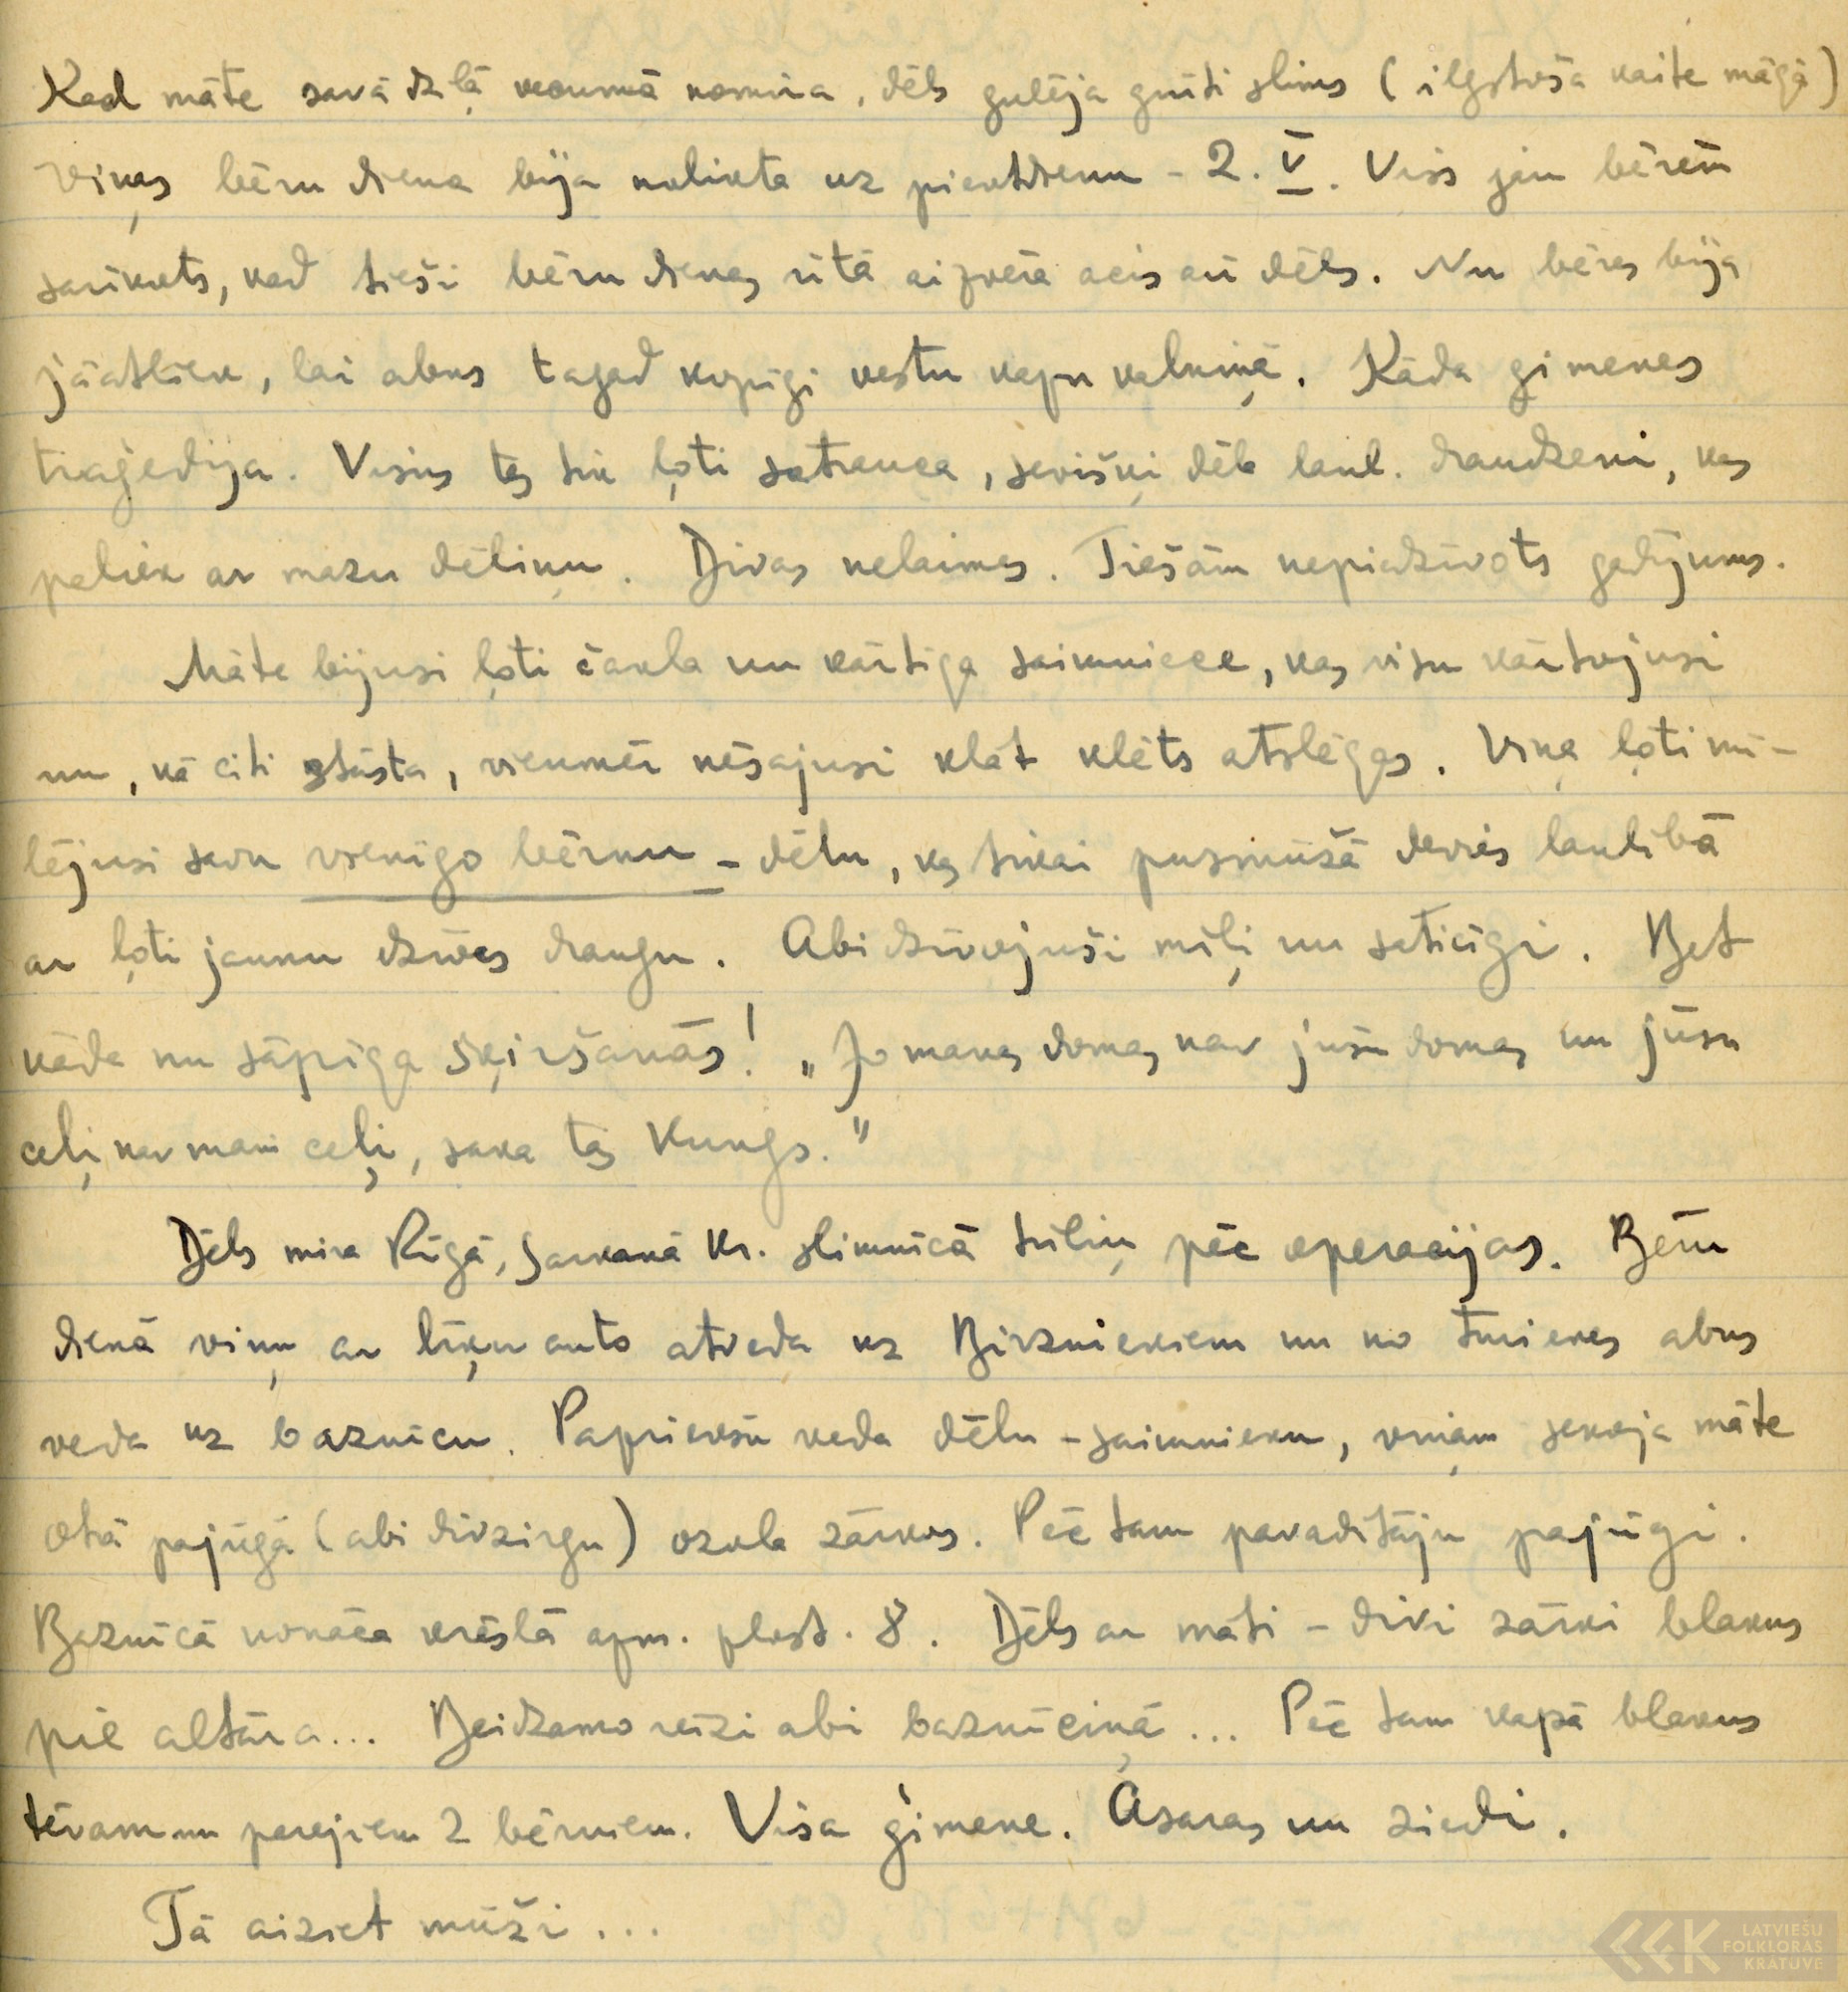 Kad māte savā dziļā vecumā nomira, dēls gulēja grūti slims (ilgstoša kaite māgā)
Viņas bēru diena bija nolikta uz piektdienu - 2. V. Viss jau bērēm
sarīkots, kad tieši bēru dienas rītā aizvēra acis arī dēls. Nu bēres bija
jāatliek, lai abus tagad kopīgi vestu kapu kalniņā. Kāda ģimenes
traģēdija. Visus tas tik ļoti satrauca, sevišķi dēla laul. draudzeni, kas
paliek ar mazu dēliņu. Divas nelaimes. Tiešām nepiedzīvots gadījums.
Māte bijusi ļoti čakla un kārtīga saimniece, kas visu kārtojusi
un, kā citi stāsta, vienmēr nēsājusi klāt klēts atslēgas. Viņa ļoti mī-
lējusi savu vienīgo bērnu - dēlu, kas tikai pusmūžā devies laulībā
ar ļoti jaunu dzīves draugu. Abi dzīvojuši mīļi un saticīgi. Bet
kāda nu sāpīga šķiršanās! „Jo manas domas nav jūsu domas un jūsu
ceļi nav mani ceļi, saka tas Kungs."
Dēls mira Rīgā, Sarkanā Kr. slimnīcā tūliņ pēc operācijas. Bēru
dienā viņu ar līķu auto atveda uz Birzniekiem un no turienes abus
veda uz baznīcu. Papriekšu veda dēlu - saimnieku, viņam sekoja māte
otrā pajūgā (abi divzirgu) ozola zārkos. Pēc tam pavadītāju pajūgi.
Baznīcā nonāca krēslā apm. plkst. 8. Dēls ar māti - divi zārki blakus
pie altāra... Beidzamo reizi abi baznīciņā... Pēc tam kapā blakus
tēvam un parējiem 2 bērniem. Visa ģimene. Asaras un ziedi.
Tā aiziet mūži...
LATVIEŠU
FOLKLORAS
KRĀTUVE